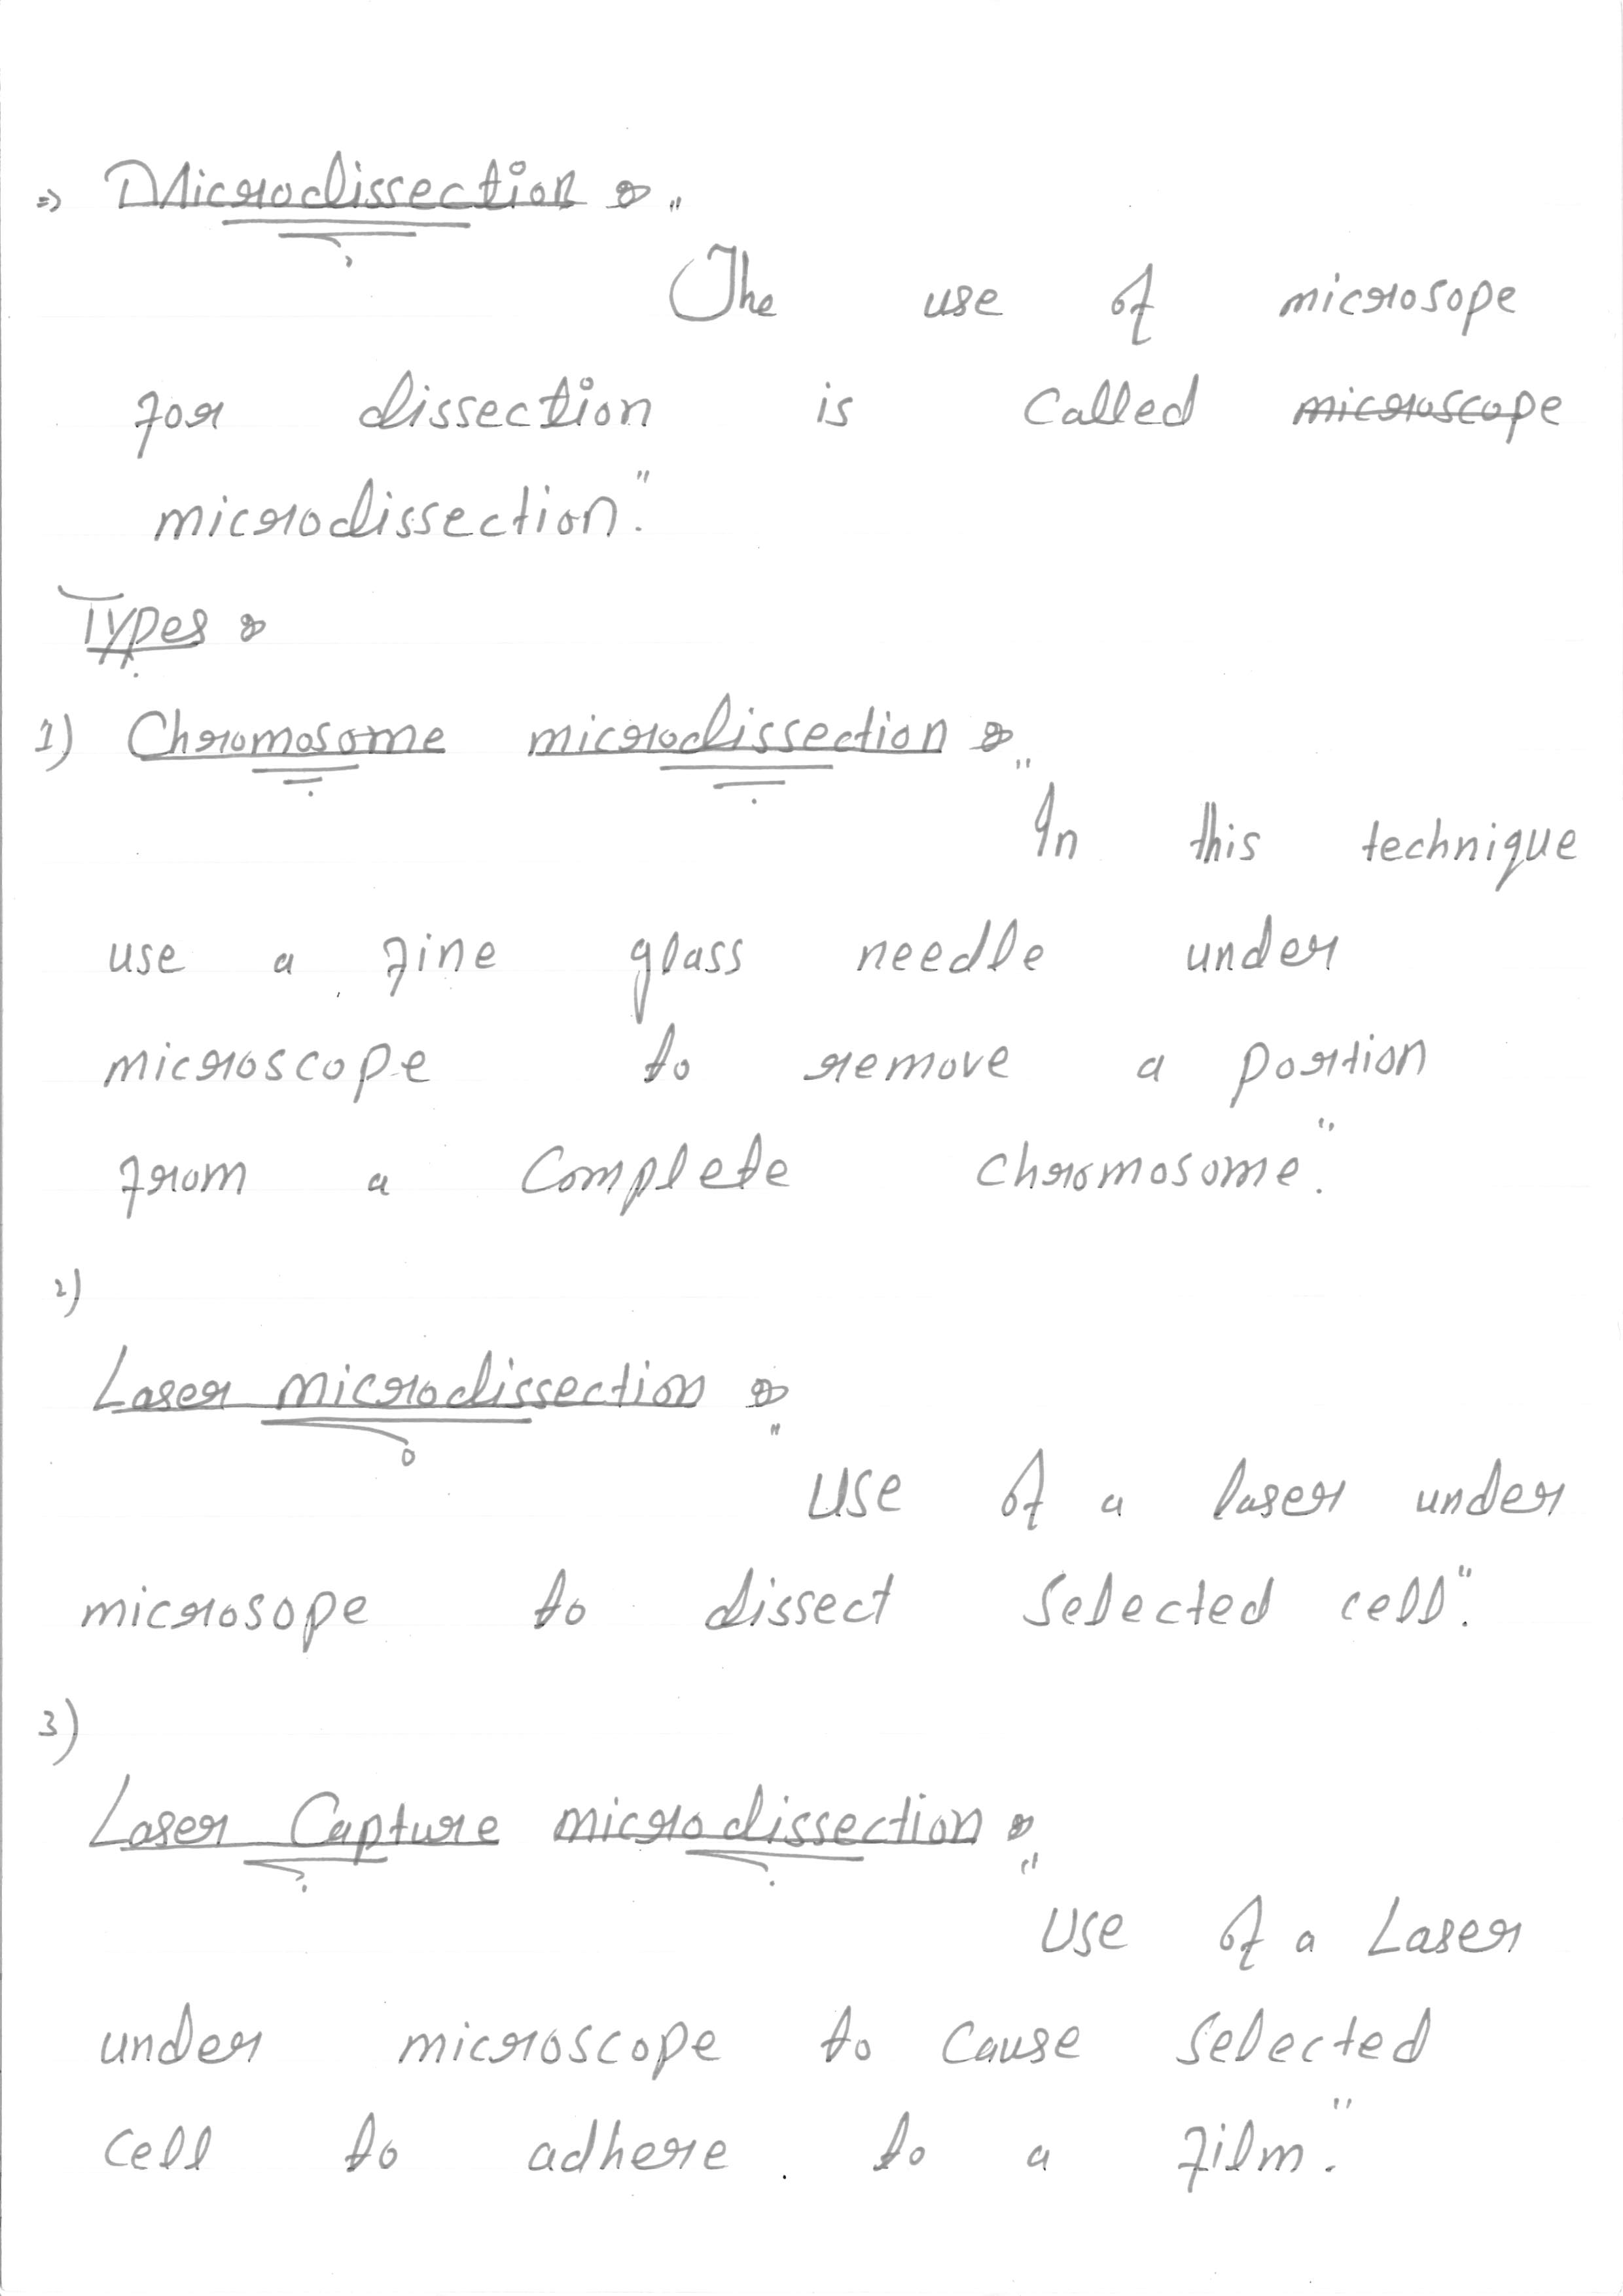 ⇒ Microdissection :- "
The use of microsope
for dissection is called ~~microscope~~
microdissection."
Types :-
1) Chromosome microdissection :- "
In this technique
use a fine glass needle under
microscope to remove a portion
from a complete chromosome."
2)
Laser microdissection :- "
Use of a laser under
microsope to dissect selected cell."
3)
Laser Capture microdissection :- "
Use of a Laser
under microscope to cause selected
cell to adhere to a film."